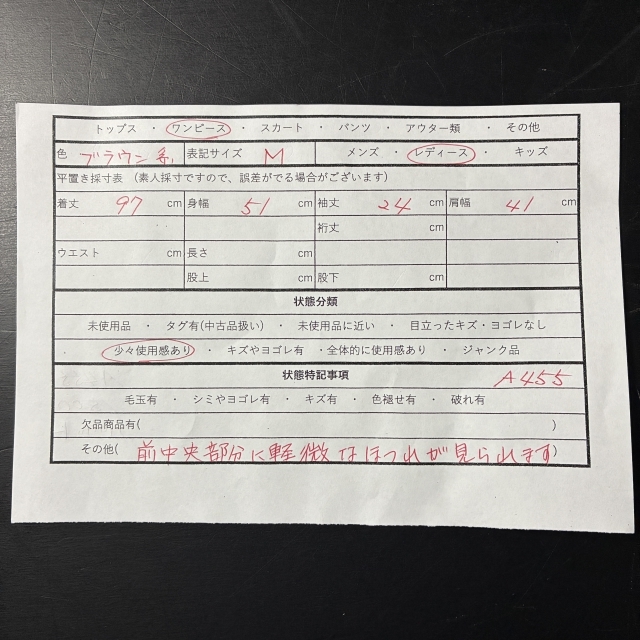 トップス ・ ワンピース ・ スカート ・ パンツ ・ アウター類 ・ その他
色 ブラウン系 表記サイズ M メンズ ・ レディース ・ キッズ
平置き採寸表 (素人採寸ですので、誤差がでる場合がございます)
着丈 97 cm 身幅 51 cm 袖丈 24 cm 肩幅 41 cm
裄丈 cm
ウエスト cm 長さ cm
股上 cm 股下 cm
状態分類
未使用品 ・ タグ有(中古品扱い) ・ 未使用品に近い ・ 目立ったキズ・ヨゴレなし
少々使用感あり ・ キズやヨゴレ有 ・全体的に使用感あり ・ ジャンク品
状態特記事項 A455
毛玉有 ・ シミやヨゴレ有 ・ キズ有 ・ 色褪せ有 ・ 破れ有
欠品商品有( )
その他( 前中央部分に軽微なほつれが見られます)